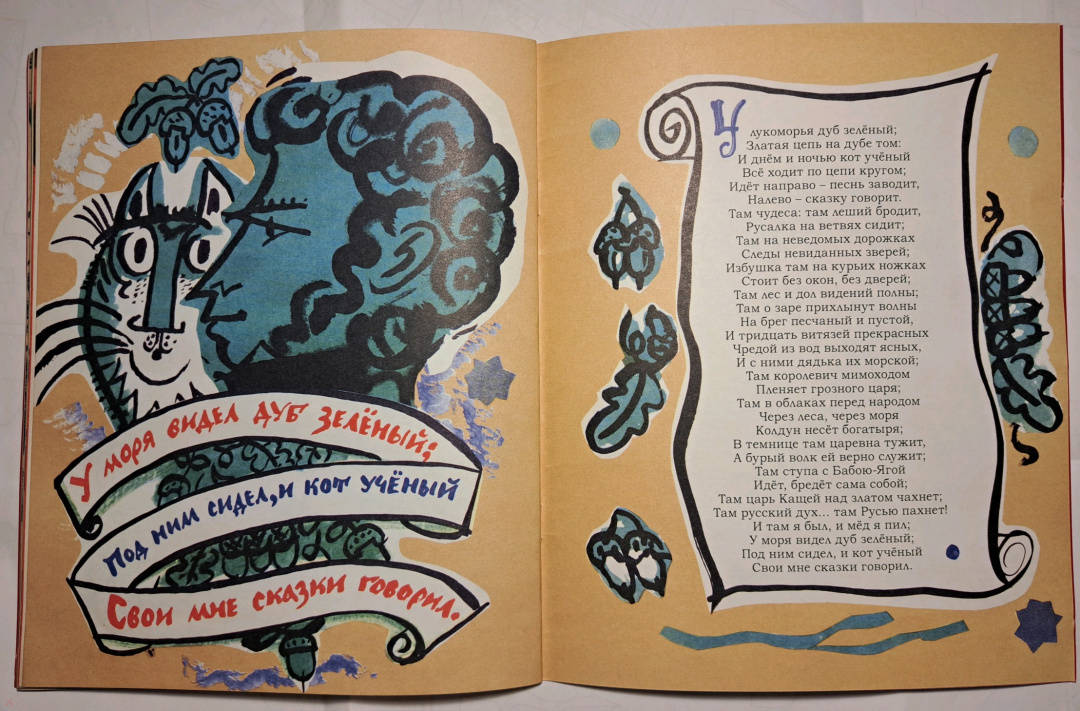 У моря видел дуб зелёный;
Под ним сидел, и кот учёный
Свои мне сказки говорил.
У лукоморья дуб зелёный;
Златая цепь на дубе том:
И днём и ночью кот учёный
Всё ходит по цепи кругом;
Идёт направо – песнь заводит,
Налево – сказку говорит.
Там чудеса: там леший бродит,
Русалка на ветвях сидит;
Там на неведомых дорожках
Следы невиданных зверей;
Избушка там на курьих ножках
Стоит без окон, без дверей;
Там лес и дол видений полны;
Там о заре прихлынут волны
На брег песчаный и пустой,
И тридцать витязей прекрасных
Чредой из вод выходят ясных,
И с ними дядька их морской;
Там королевич мимоходом
Пленяет грозного царя;
Там в облаках перед народом
Через леса, через моря
Колдун несёт богатыря;
В темнице там царевна тужит,
А бурый волк ей верно служит;
Там ступа с Бабою-Ягой
Идёт, бредёт сама собой;
Там царь Кащей над златом чахнет;
Там русский дух... там Русью пахнет!
И там я был, и мёд я пил;
У моря видел дуб зелёный;
Под ним сидел, и кот учёный
Свои мне сказки говорил.